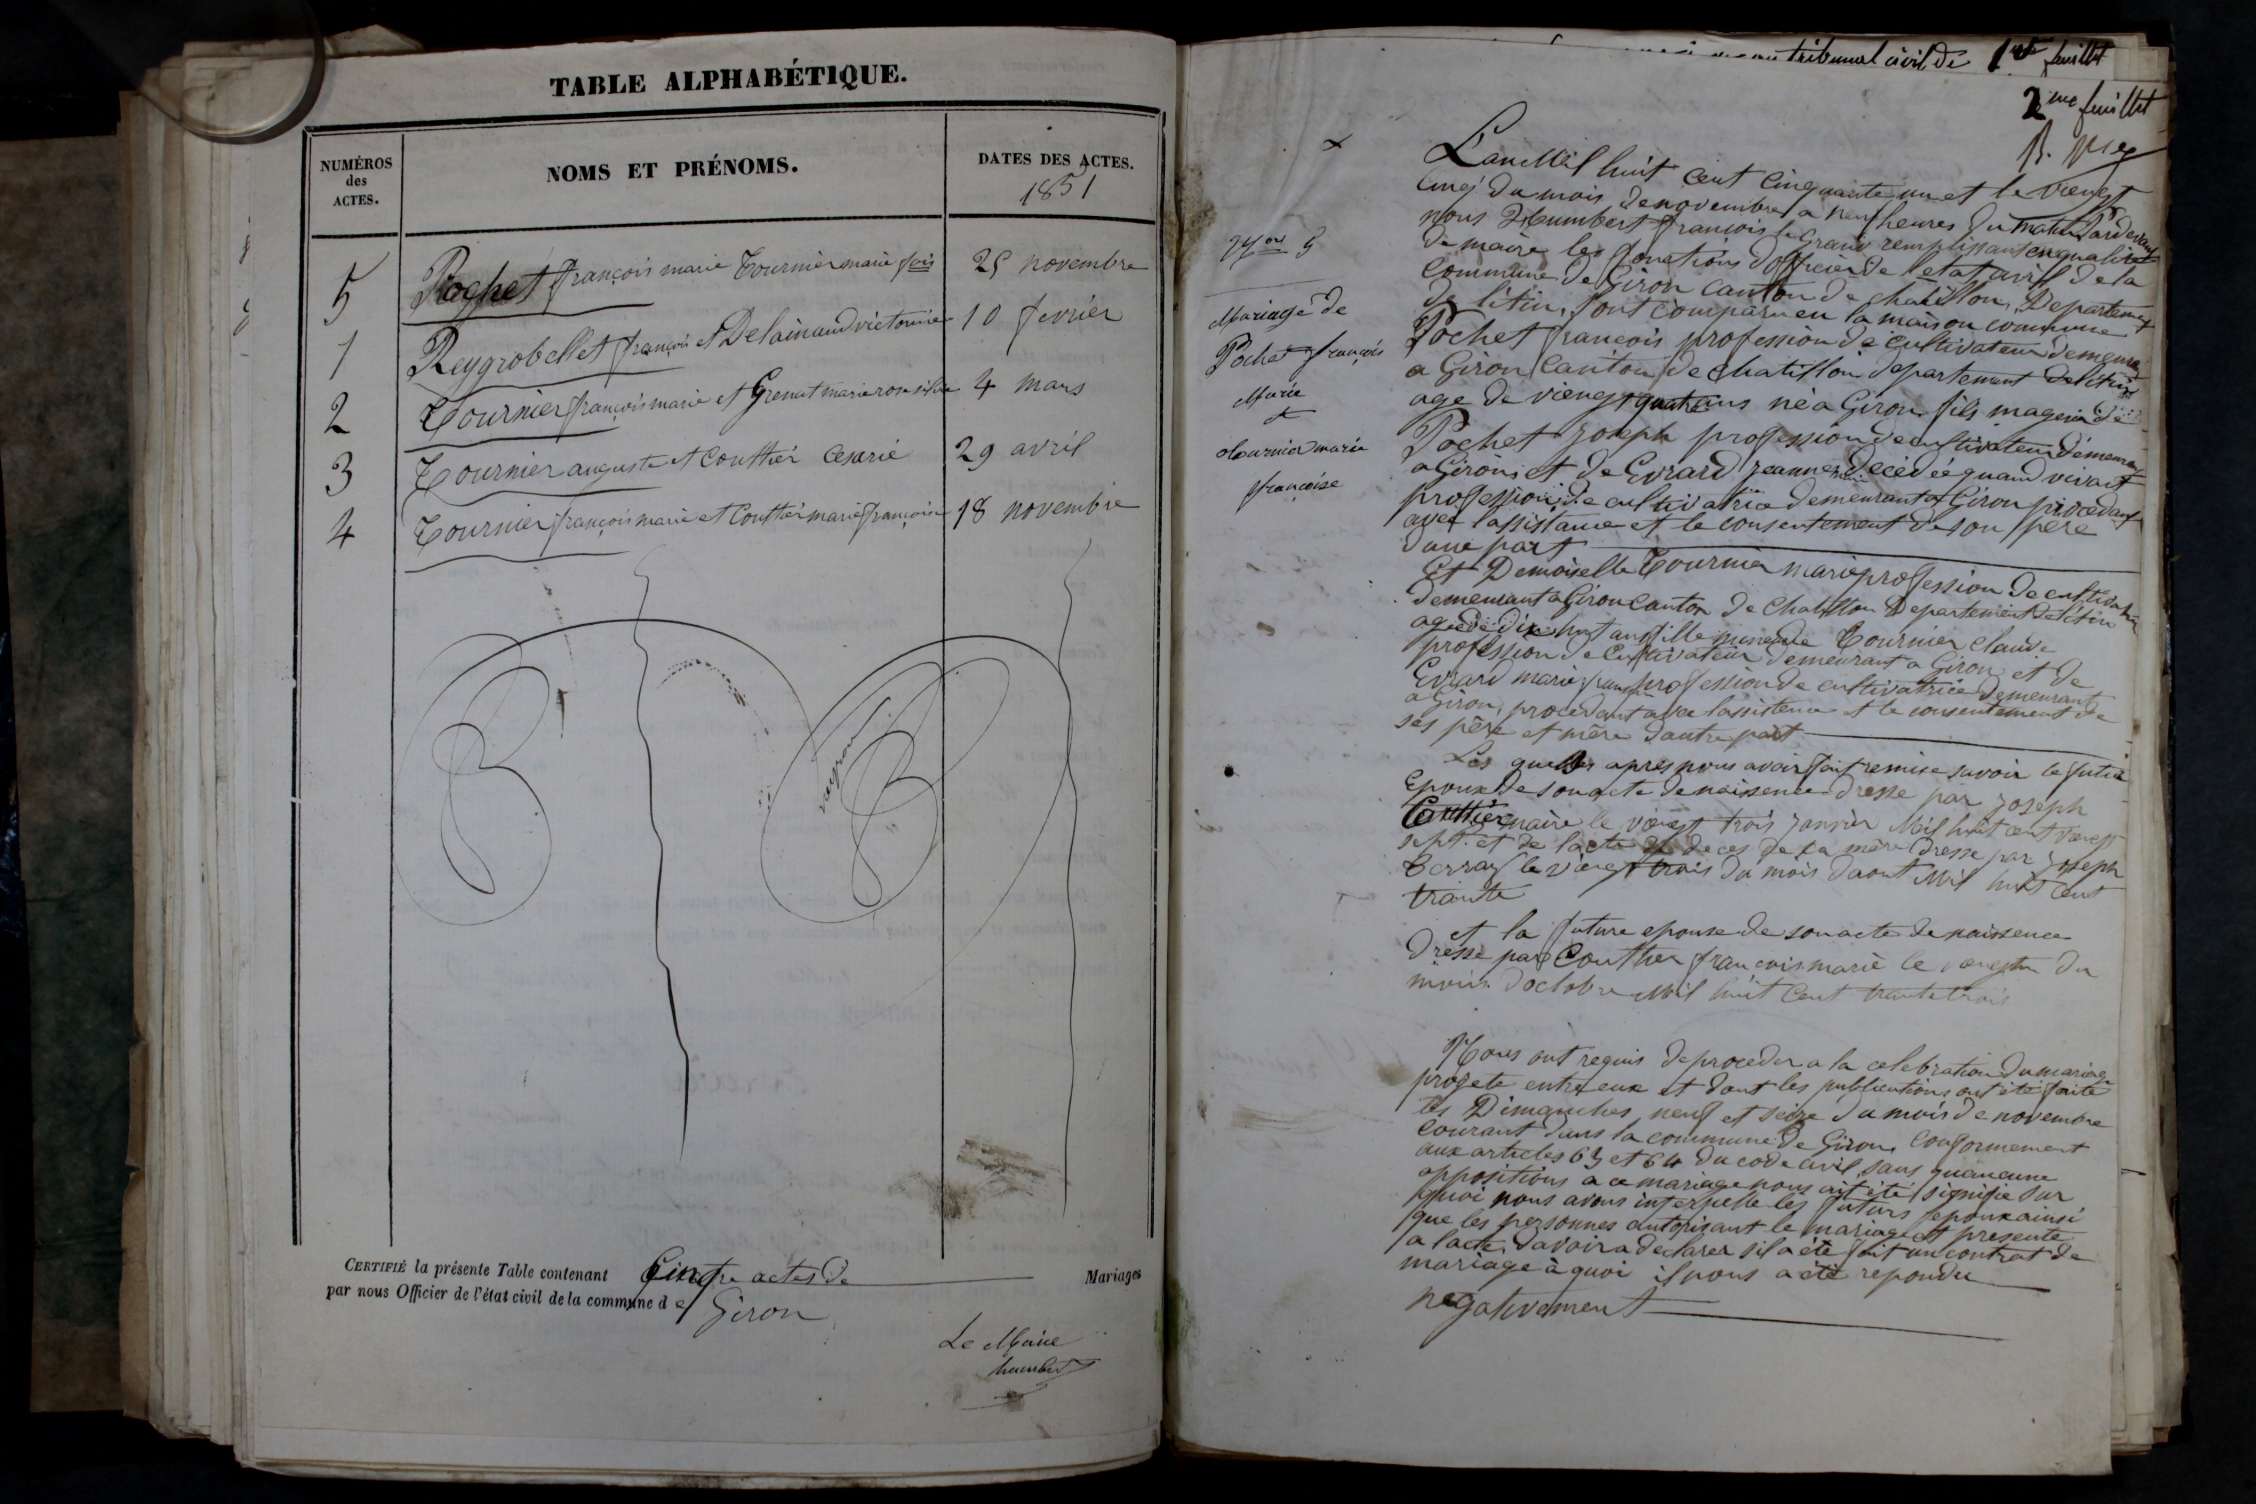 TABLE ALPHABÉTIQUE.
NUMÉROS
des
ACTES.
NOMS ET PRÉNOMS.
DATES DES ACTES.
1851
5 Pochet françois marie Tournier marie 25 novembre
1 Reygrobellet françois et Delainaud victorine 10 fevrier
2 Tournier françois marie et Grenat marie rose 4 mars
3 Tournier auguste et Couttier Cesarie 29 avril
4 Tournier françois marie et Couttier marie françoise 18 novembre
CERTIFIÉ la présente Table contenant actes de Mariages
par nous Officier de l'état civil de la commune d e Giron
Le Maire
humbert
tribunal civil de 1er feuillet
2eme feuillet
No 5
Mariage de
Pochet françois
Marie
et
tournier marie
françoise
L'an Mil huit cent cinquante un et le viengt
cinq du mois de novembre a neuf heures du matin Pardevant
nous Humbert françois le Grand remplissant en qualité
de maire les fonctions d'officier de l'etat civil de la
commune de Giron canton de chatillon, Departement
de l'êtin, sont comparu en la maison commune
Pochet françois profession de cultivateur demeurant
a Giron canton de chatillon departement de l'êtin
agé de viengt quatre ans né a Giron fils mageur de
Pochet Joseph profession de cultivateur demeurant
a Giron, et de Evrard Jeanne decedée quand vivait
profession de cultivatrice demeurant a Giron procedant
avec l'assistance et le consentement de son père
d'une part
Et Demoiselle Tournier marie profession de cultivatrice
demeurant a Giron canton de Chatillon Departement de l'êtin
agée de dix huit ans fille mineure de Tournier Claude
profession de Cultivateur demeurant a Giron et de
Evrard marie profession de cultivatrice demeurant
a Giron, procedant avec l'assistence et le consentement de
ses père et mère d'autre part
Les quelles apres nous avoir fait remise savoir le futur
Epoux de son acte de naissence dresse par joseph
Couttier maire le viengt trois janvier Mil huit cent viengt
sept. et de l'acte de deces de sa mère dresse par Joseph
le viengt trois du mois daout Mil huit cent
trante
et la future epouse de son acte de naissence
dresse par Couttier françois marie le du
mois d'octobre Mil huit cent trante trois
Nous ont requis de proceder a la celebration du mariage
projete entre eux et dont les publications ont été faite
les Dimanches neuf et seize du mois de novembre
courant dans la commune de Giron, conformement
aux articles 63 et 64 du code civil, sans quaucune
oppositions a ce mariage nous ait été signifie sur
quoi nous avons interpelle les futurs epoux ainsi
que les personnes autorisant le mariage et presente
a l'acte, davoir a declarer sil a été fait un contrat de
mariage à quoi il nous a été repondu
negativement